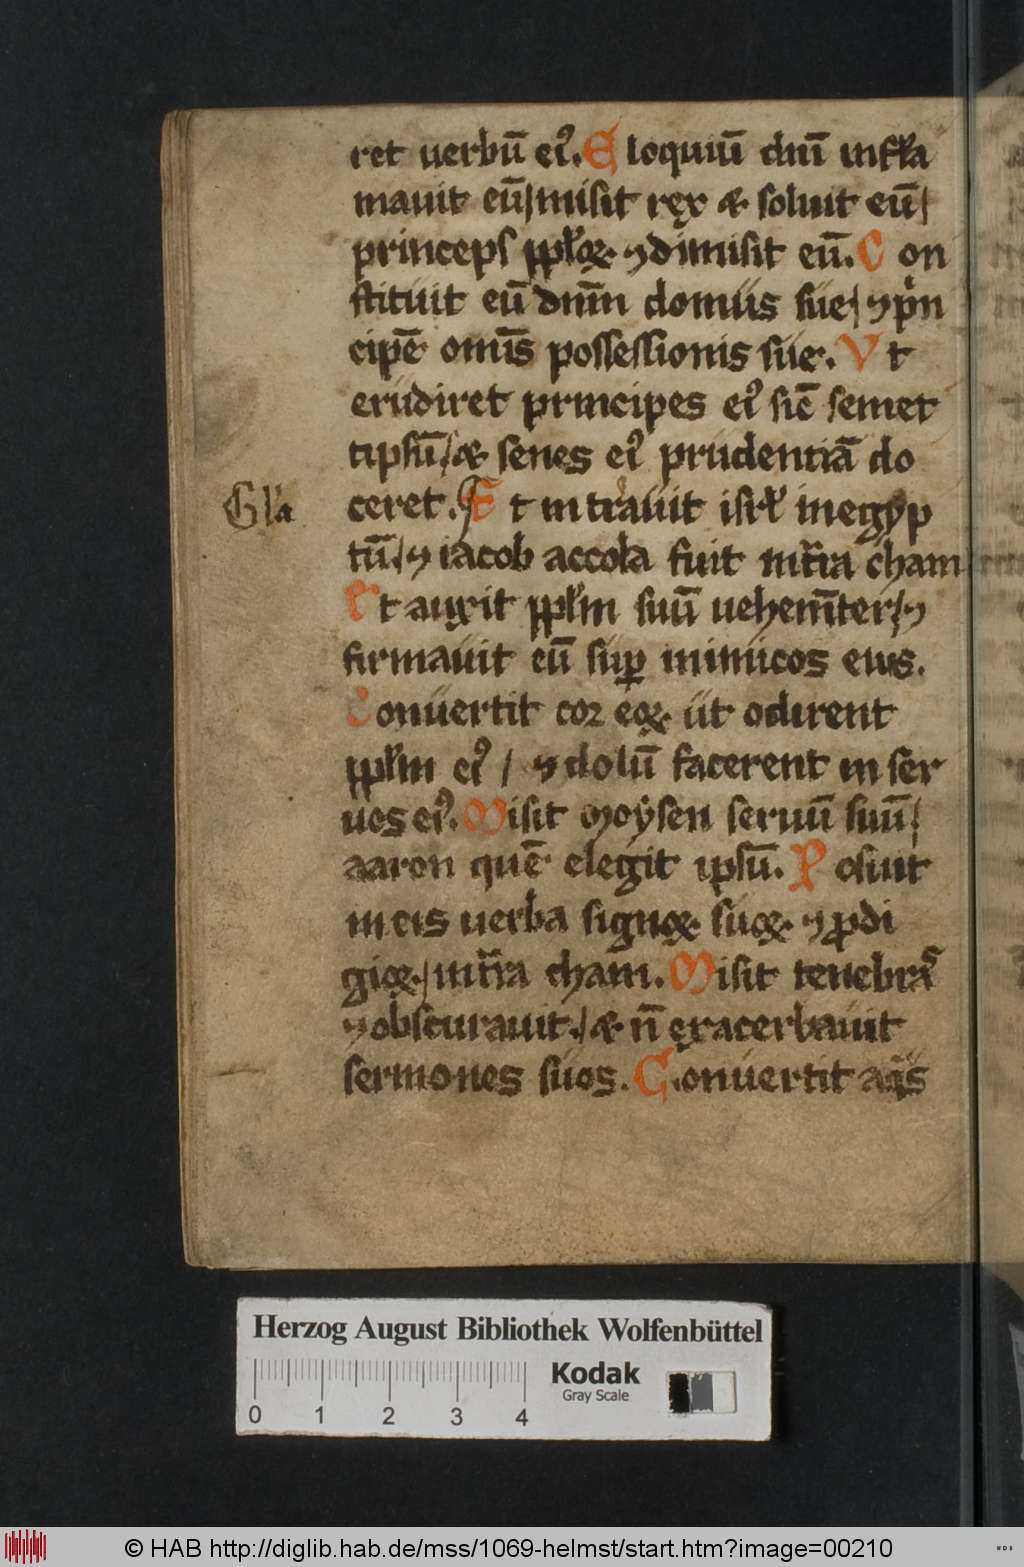 ret verbū eiꝰ. Eloquiū dnī infla
mauit eū / misit rex & soluit eū /
princeps pploꝝ ⁊ dimisit eū. Con
stituit eū dnm̄ domus sue / ⁊ pⁱn
cipē omīs possessionis sue. Vt
erudiret principes eiꝰ sic̄ semet
ipsū / & senes eiꝰ prudentiā do
ceret. Et intrauit isrł in egyp
Gła
tū / ⁊ iacob accola fuit in tr̄a cham
Et auxit ppłm suū uehem̄ter / ⁊
firmauit eū suꝑ inimicos eius.
Conuertit cor eoꝝ ut odirent
ppłm eiꝰ / ⁊ dolū facerent in ser
uos eiꝰ. Misit moẏsen seruū suū /
aaron quē elegit ipsū. Posuit
in eis uerba signoꝝ suoꝝ ⁊ ꝓdi
gioꝝ / in tr̄a cham. Misit tenebras
⁊ obscurauit / & n̄ exacerbauit
sermones suos. Conuertit aqᵃs
Herzog August Bibliothek Wolfenbüttel
Kodak
Gray Scale
0 1 2 3 4
© HAB http://diglib.hab.de/mss/1069-helmst/start.htm?image=00210